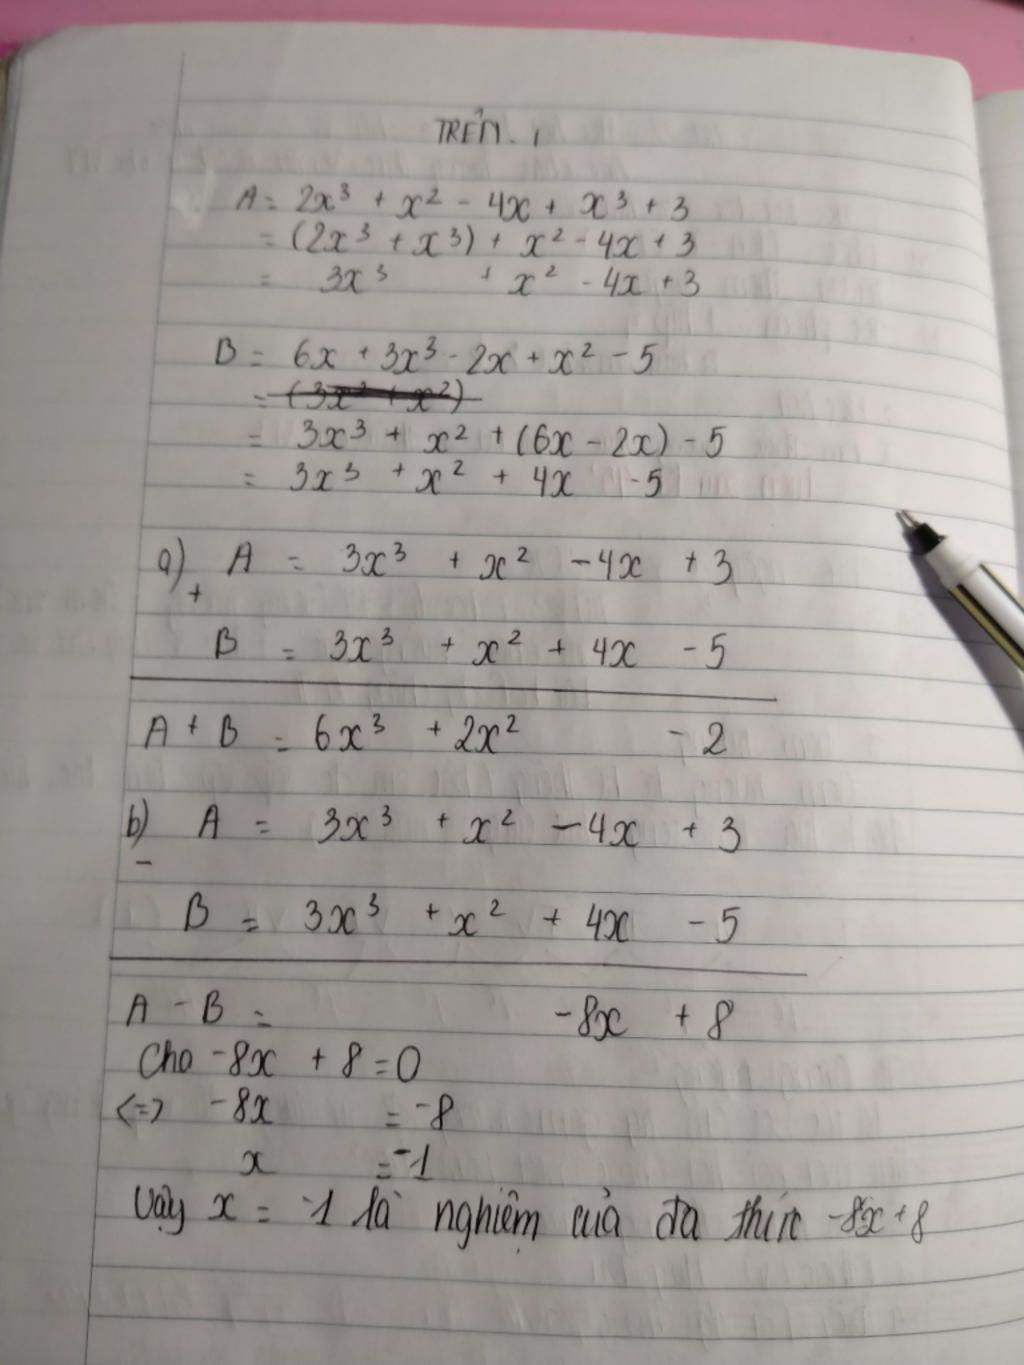 TRẺN. 1
A = 2x³ + x² - 4x + x³ + 3
= (2x³ + x³) + x² - 4x + 3
= 3x³ + x² - 4x + 3
B = 6x + 3x³ - 2x + x² - 5
= (3x³ + x²)
= 3x³ + x² + (6x - 2x) - 5
= 3x³ + x² + 4x - 5
a) A = 3x³ + x² - 4x + 3
+
B = 3x³ + x² + 4x - 5
A + B = 6x³ + 2x² - 2
b) A = 3x³ + x² - 4x + 3
-
B = 3x³ + x² + 4x - 5
A - B = -8x + 8
Cho -8x + 8 = 0
<=> -8x = -8
x = -1
Vậy x = -1 là nghiệm của đa thức -8x + 8